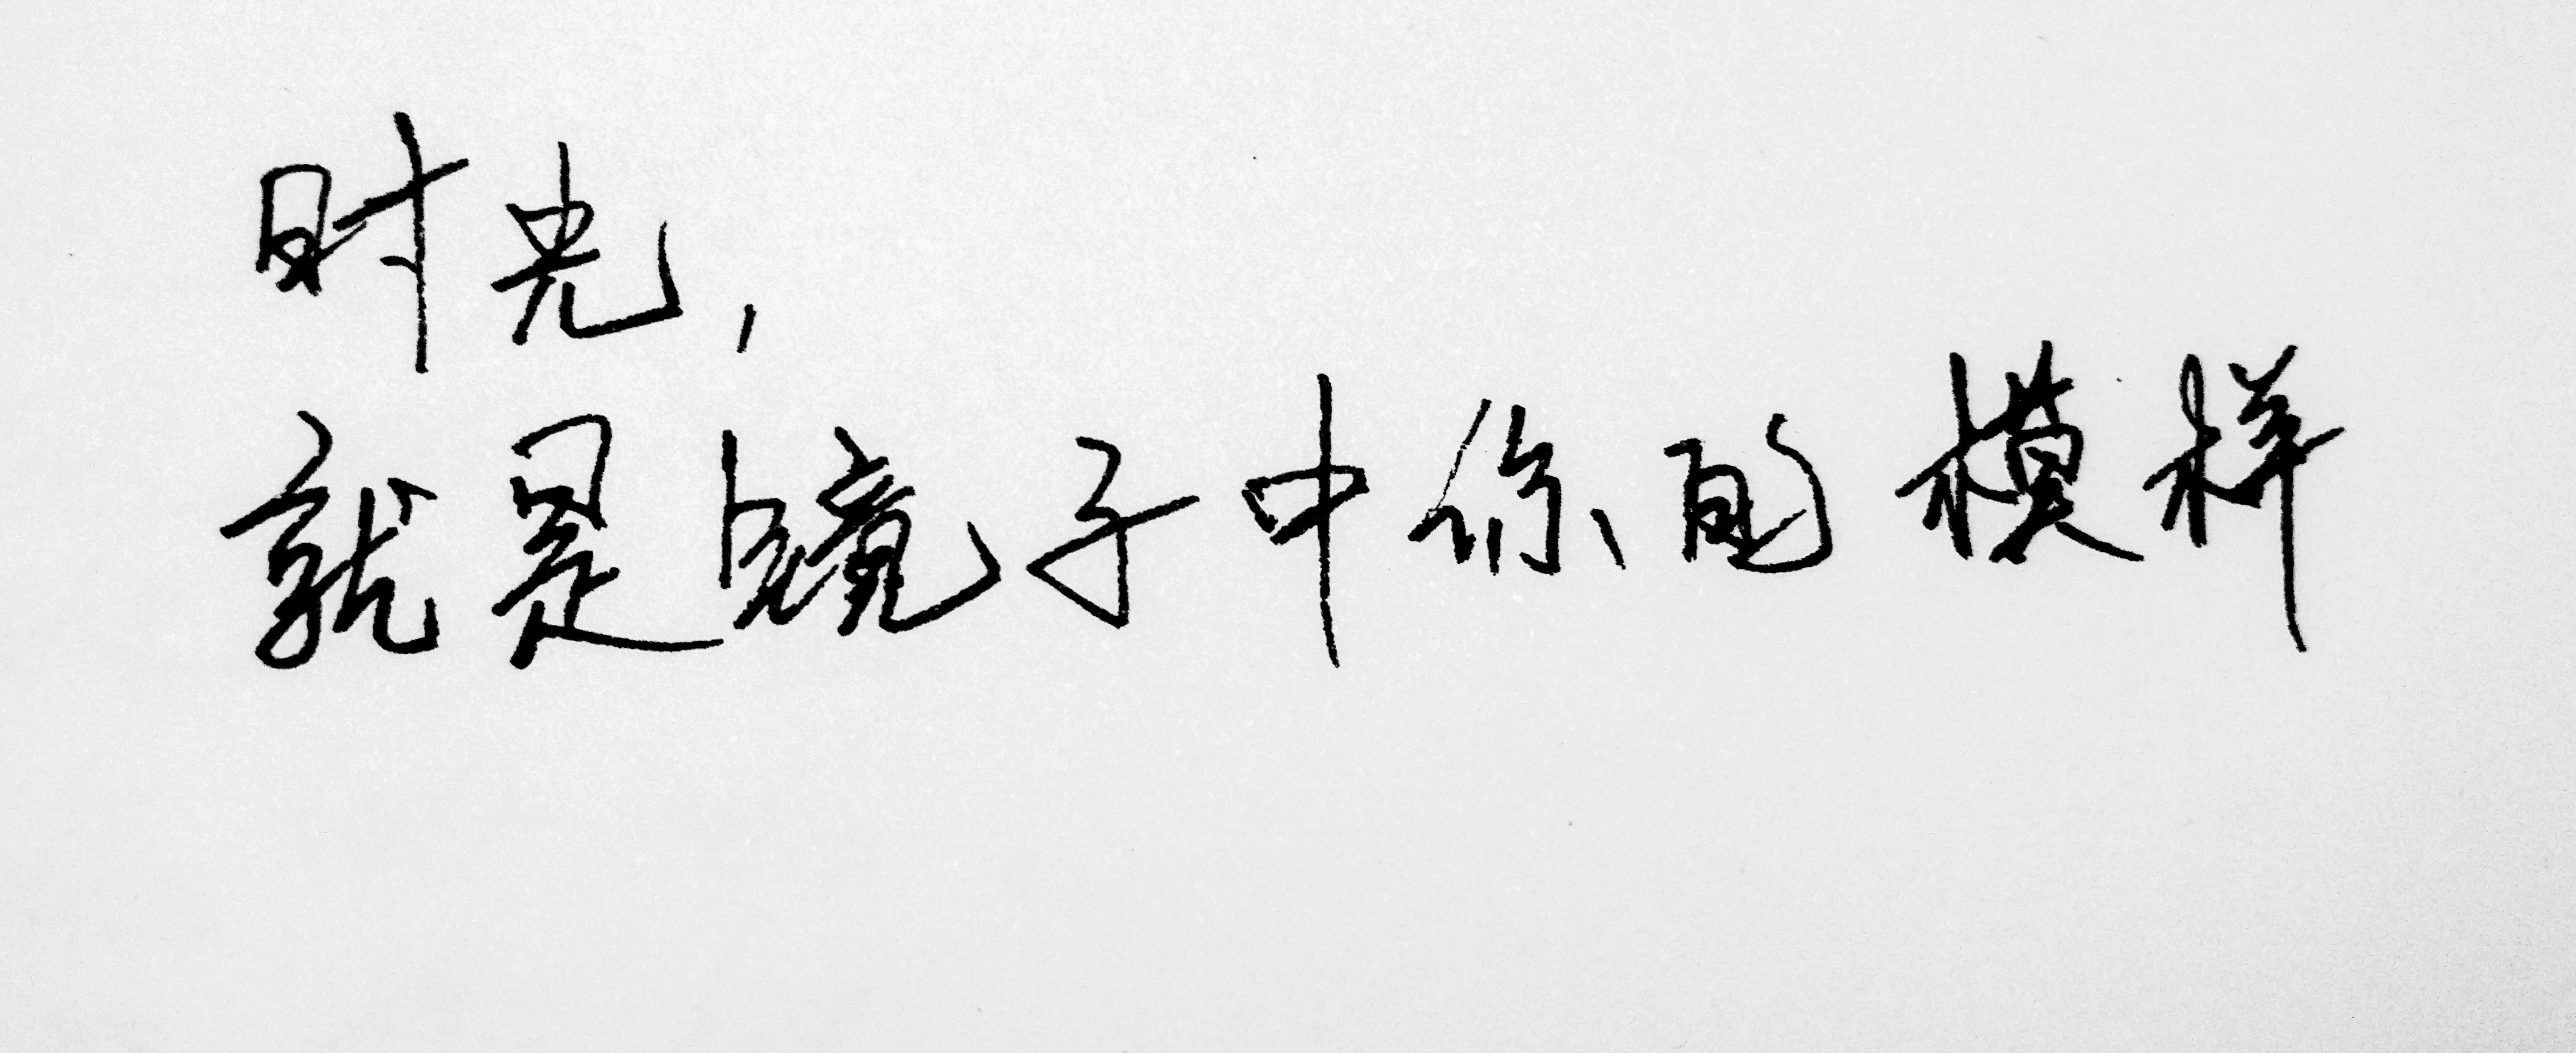 时光，
就是镜子中你的模样